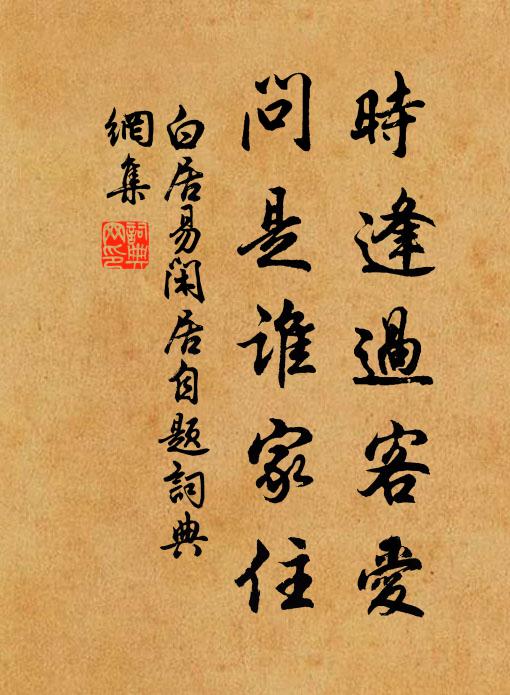 時逢過客愛
問是誰家住
白居易閑居自題詞典
網集
詞典
網印